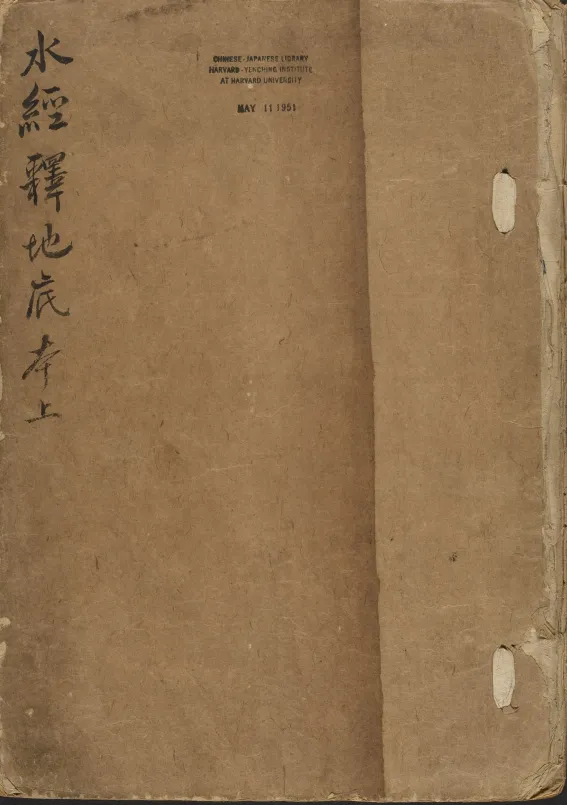 水經釋地底本上
CHINESE-JAPANESE LIBRARY
HARVARD-YENCHING INSTITUTE
AT HARVARD UNIVERSITY
MAY 11 1951